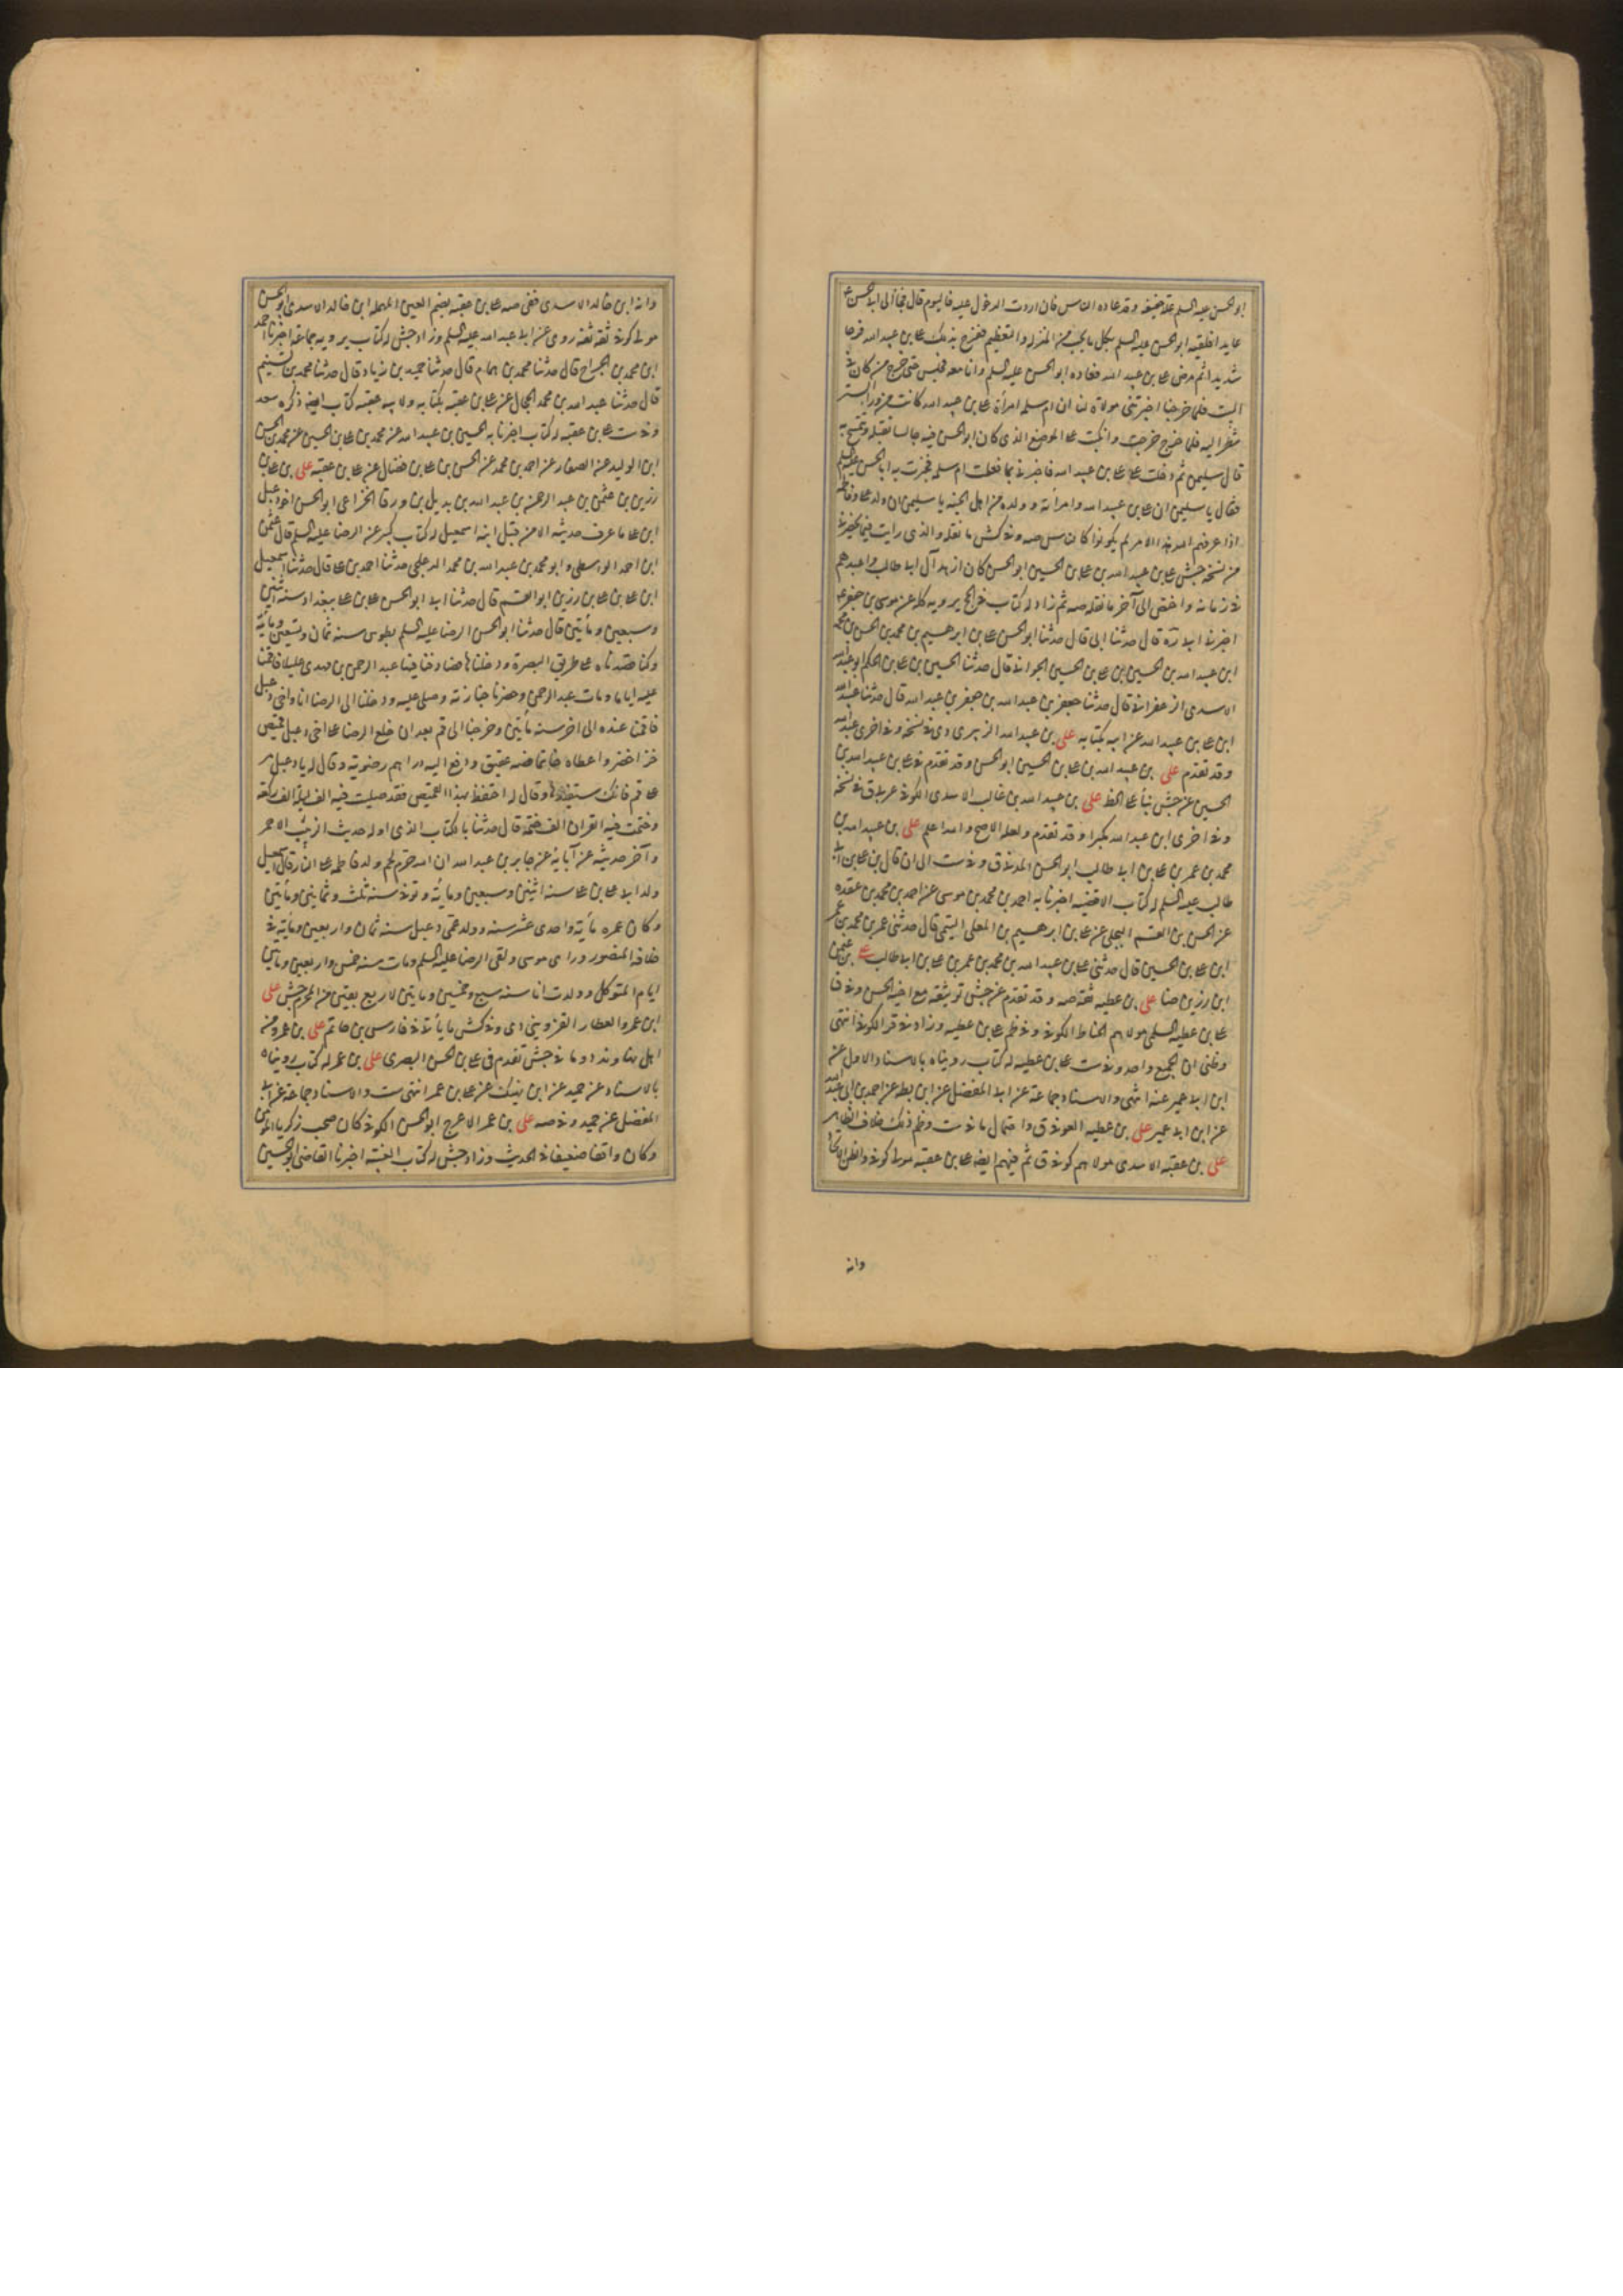 ابو الحسن عليه السلم علة خفيفة وقد عاده الناس فان اردت الدخول عليه فاليوم قال فجاء الى ابى الحسن ع
عايدا فلقيه ابو الحسن عليه السلم بكل ما يحب من المنزلة والتعظيم ففرح بذلك على بن عبيد الله فرحا
شديدا ثم مرض على بن عبيد الله فعاده ابو الحسن عليه السلم وانا معه فجلس حتى خرج من كان فى
البيت فلما خرجنا اخبرتنى مولاة لنا ان ام سلمة امرأة على بن عبيد الله كانت من وراء الستر
تنظر اليه فلما خرج خرجت وانكبت على الموضع الذى كان ابو الحسن فيه جالسا تقبله وتتمسح به
قال سليمن ثم دخلت على على بن عبيد الله فاخبرنى بما فعلت ام سلمة فخبرت به ابا الحسن عليه السلم
فقال يا سليمن ان على بن عبيد الله وامرأته وولده من اهل الجنة يا سليمن ان ولد على وفاطمة
اذا عرفهم الله هذا الامر لم يكونوا كالناس صه وفى كش ما نقله والذى رايت فيما يحضرنى
من نسخة جش على بن عبيد الله بن على بن الحسين ابو الحسن كان ازهد آل ابى طالب واعبدهم
فى زمانه واختص الى آخر ما نقله صه ثم زاد له كتاب فى الحج يرويه كله عن موسى بن جعفر ع
اخبرنا قال حدثنا ابى قال حدثنا ابو الحسن على بن ابرهيم بن محمد بن الحسن بن محمد
ابن عبيد الله بن الحسين بن على بن الحسين الجوانى قال حدثنا الحسين بن على بن الحكم ابو عبد الله
الاسدى الزعفرانى قال حدثنا جعفر بن عبد الله بن جعفر بن عبد الله قال حدثنا عبيد الله
ابن على بن عبيد الله عن ابيه بكتابه على بن عبد الله الزبيرى دى فى نسخة وفى اخرى عبيد الله
وقد تقدم على بن عبيد الله بن على بن الحسين ابو الحسن وقد تقدم فى على بن عبد الله بن
الحسين عن جش بناء على الخط على بن عبيد الله بن غالب الاسدى الكوفى عربى ق فى نسخة
وفى اخرى ابن عبد الله مكبرا وقد تقدم ولعله الاصح والله اعلم على بن عبيد الله بن
محمد بن عمر بن على بن ابى طالب ابو الحسن المدنى ق وفى ست الى ان قال بن على بن ابى
طالب عليه السلم له كتاب الاقضية اخبرنا به احمد بن محمد بن موسى عن احمد بن محمد بن عقده
عن الحسن بن القسم البجلى عن على بن ابرهيم بن المعلى التيمى قال حدثنى عمر بن محمد بن عمر
ابن على بن الحسين قال حدثنى على بن عبيد الله بن محمد بن عمر بن على بن ابى طالب على بن عثمن
ابن رزين ضا على بن عطية ثقة صه وقد تقدم عن جش توثيقه مع اخيه الحسن وفى ق
على بن عطية السلمى مولاهم الحناط الكوفى وفى ظم على بن عطية وزاد فى قر الكوفى انتهى
وظنى ان الجميع واحد وفى ست على بن عطية له كتاب رويناه بالاسناد الاول عن
ابن ابى عمير عنه انتهى والاسناد جماعة عن ابى المفضل عن ابن بطة عن احمد بن ابى عبد الله
عن ابن ابى عمير على بن عطية العوفى ق واحتمال ما فى ست وظم ذلك خلاف الظاهر
على بن عقبة الاسدى مولاهم كوفى ق ثم فيهم ايضا على بن عقبة مولى كوفى والظن الاتحاد
وانه
وانه ابن خالد الاسدى ففى صه على بن عقبة بضم العين المهملة ابن خالد الاسدى ابو الحسن
مولى كوفى ثقة ثقة روى عن ابى عبد الله عليه السلم وزاد جش له كتاب يرويه جماعة اخبرنا احمد
ابن محمد بن الجراح قال حدثنا محمد بن همام قال حدثنا حميد بن زياد قال حدثنا محمد بن تسنيم
قال حدثنا عبد الله بن محمد الحجال عن على بن عقبة بكتابه ولابيه عقبة كتاب ايضا ذكره سعد
وفى ست على بن عقبة له كتاب اخبرنا به الحسين بن عبيد الله عن محمد بن على بن الحسين عن محمد بن الحسن
ابن الوليد عن الصفار عن احمد بن محمد عن الحسن بن على بن فضال عن على بن عقبة على بن على بن
رزين بن عثمن بن عبد الرحمن بن عبد الله بن بديل بن ورقا الخزاعى ابو الحسن اخو دعبل
ابن على ما عرف حديثه الا من قبل ابنه اسمعيل له كتاب كبير عن الرضا عليه السلم قال عثمن
ابن احمد الواسطى وابو محمد بن عبد الله بن محمد الدعلجى حدثنا احمد بن على قال حدثنا اسمعيل
ابن على بن على بن رزين ابو القسم قال حدثنا ابى ابو الحسن على بن على ببغداد سنه اثنتين
وسبعين ومأتين قال حدثنا ابو الحسن الرضا عليه السلم بطوس سنه ثمان وتسعين ومائة
وكنا قصدناه على طريق البصرة ودخلناها فصادفنا فيها عبد الرحمن بن مهدى عليلا فاقمنا
عليه اياما ومات عبد الرحمن وحضرنا جنازته وصلى عليه ودخلنا الى الرضا انا واخى دعبل
فاقمنا عنده الى آخر سنه مأتين وخرجنا الى قم بعد ان خلع الرضا على اخى دعبل قميص
خز اخضر واعطاه خاتما فصه عقيق ودفع اليه دراهم رضوية وقال له يا دعبل مر
على قم فانك ستفيد بها وقال له احتفظ بهذا القميص فقد صليت فيه الف ليلة الف ركعة
وختمت فيه القران الف ختمة قال حدثنا بالكتاب الذى اوله حديث الزبيب الاحمر
وآخر حديثه عن آبائه عن جابر بن عبد الله ان الله حرم لحم ولد فاطمة على النار قال اسمعيل
ولد ابى على بن على سنه اثنتين وسبعين ومايه وتوفى سنه ثلث وثمانين ومأتين
وكان عمره مأية واحدى عشر سنه وولد عمى دعبل سنه ثمان واربعين ومأية فى
خلافة المنصور وراى موسى ولقى الرضا عليه السلم ومات سنه خمس واربعين ومأتين
ايام المتوكل وولدت انا سنه سبع وخمسين ومأتين لاربع بقين من المحرم جش على
ابن عمرو العطار القزوينى دى وفى كش ما يأتى فى فارس بن حاتم على بن عمرو من
اهل نهاوند دو ما فى جش تقدم فى على بن الحسن البصرى على بن عمر له كتاب رويناه
بالاسناد عن حميد عن ابن نهيك عن على بن عمر انتهى ست والاسناد جماعة عن ابى
المفضل عن حميد وفى صه على بن عمر الاعرج ابو الحسن الكوفى كان صحب زكريا المؤمن
وكان واقفا ضعيفا فى الحديث وزاد جش له كتاب الغيبة اخبرنا القاضى ابو الحسين